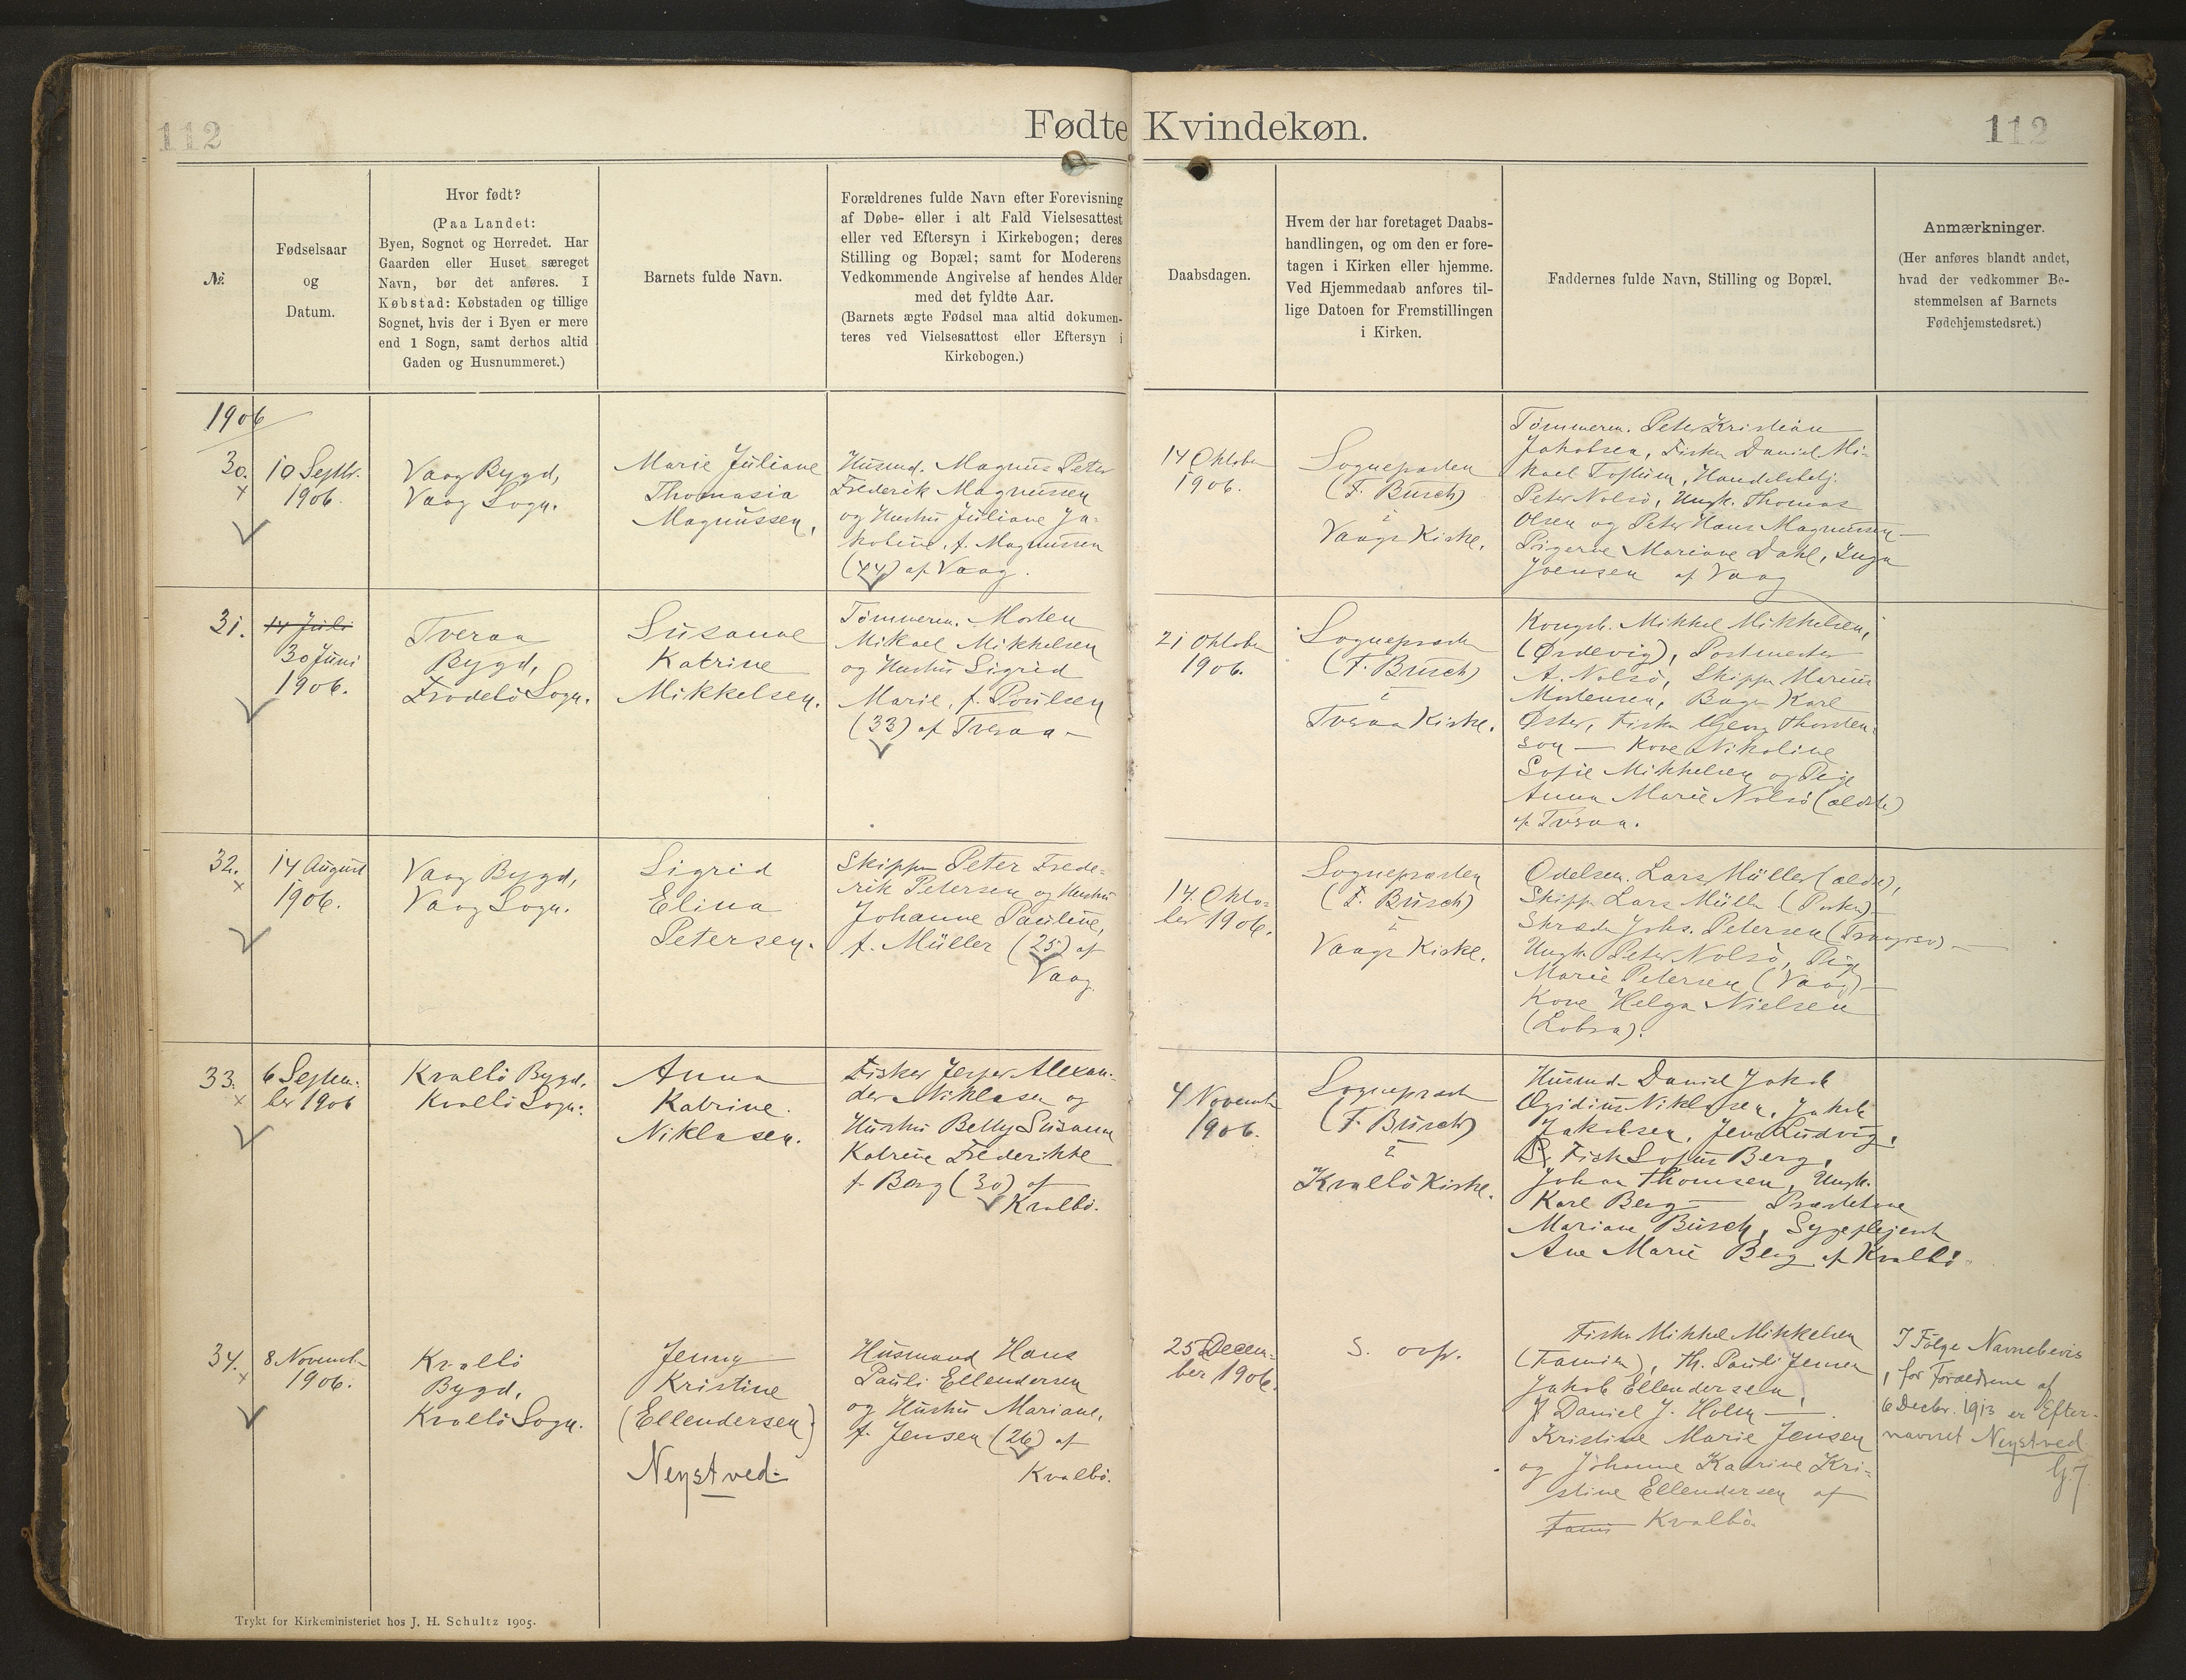 112
Fødte Kvindekøn.
112
№.
Fødselsaar
og
Datum.
Hvor født?
(Paa Landet:
Byen, Sognet og Herredet. Har
Gaarden eller Huset særeget
Navn, bør det anføres. I
Købstad: Købstaden og tillige
Sognet, hvis der i Byen er mere
end 1 Sogn, samt derhos altid
Gaden og Husnummeret.)
Barnets fulde Navn.
Forældrenes fulde Navn efter Forevisning
af Døbe- eller i alt Fald Vielsesattest
eller ved Eftersyn i Kirkebogen; deres
Stilling og Bopæl; samt for Moderens
Vedkommende Angivelse af hendes Alder
med det fyldte Aar.
(Barnets ægte Fødsel maa altid dokumen-
teres ved Vielsesattest eller Eftersyn i
Kirkebogen.)
Daabsdagen.
Hvem der har foretaget Daabs-
handlingen, og om den er fore-
tagen i Kirken eller hjemme.
Ved Hjemmedaab anføres til-
lige Datoen for Fremstillingen
i Kirken.
Faddernes fulde Navn, Stilling og Bopæl.
Anmærkninger.
(Her anføres blandt andet,
hvad der vedkommer Be-
stemmelsen af Barnets
Fødehjemstedsret.)
1906
30.
10 Septbr.
1906.
Vaag Bygd,
Vaag Sogn.
Marie Juliane
Thomasia
Magnussen,
Husmd. Magnus Peter
Frederik Magnussen
og Hustru Juliane Ja-
kobine, f. Magnussen
(44) af Vaag.
14 Oktober
1906.
Sognepræsten
(F. Busch)
i
Vaags Kirke.
Tømmerm. Peter Kristian
Jakobsen, Fisker Daniel Mi-
kael Toftum, Handelsbetj.
Peter Nolsø, Ungk. Thomas
Olsen og Peter Hans Magnussen —
Pigerne Mariane Dahl, Inga
Joensen af Vaag
31.
14 Juli
30 Juni
1906.
Tveraa
Bygd,
Frodebø Sogn.
Susanne
Katrine
Mikkelsen.
Tømmerm. Morten
Mikael Mikkelsen
og Hustru Sigrid
Marie, f. Poulsen
(33) af Tveraa —
21 Oktober
1906.
Sognepræsten
(F. Busch)
i
Tveraa Kirke.
Kongsb. Mikkel Mikkelsen,
(Ørdevig), Postmester
A. Nolsø, Skipper Marius
Mortensen, Bager Karl
Øster, Fisker Georg Thorsten-
son — Kone Nikoline
Sofie Mikkelsen og Pige
Anna Marie Nolsø (ældste)
af Tveraa.
32.
14 August
1906.
Vaag Bygd,
Vaag Sogn.
Sigrid
Elina
Petersen.
Skipper Peter Frede-
rik Petersen og Hustru
Johanne Pauline,
f. Müller (25) af
Vaag.
14. Okto-
ber 1906.
Sognepræsten
(F. Busch)
i
Vaags Kirke.
Odelsm. Lars Müller (ældre),
Skipper Lars Müller (Porkeri) —
Skræder Johs. Petersen (Trangisv) —
Ungk. Peter Nolsø, Pige
Marie Petersen (Vaag) —
Kone Helga Nielsen
(Lobra).
33.
6 Septem-
ber 1906
Kvalbø Bygd,
Kvalbø Sogn.
Anna
Katrine
Niklasen.
Fisker Jesper Alexan-
der Niklasen og
Hustru Betty Susanne
Katrine Frederikke
f. Berg (30) af
Kvalbø.
4 November
1906.
Sognepræsten
(F. Busch)
i
Kvalbø Kirke.
Husmd. Daniel Jakob
Ægidius Niklasen, Jakob
Jakobsen, Jens Ludvig,
Fisk Sofus Berg,
Johan Thomsen, Ungk.
Karl Berg — Præstekone
Mariane Busch, Sygeplejerske
Ane Marie Berg af Kvalbø.
34.
8 Novemb.
1906.
Kvalbø
Bygd,
Kvalbø Sogn.
Jenny
Kristine
(Ellendersen)
Neystved
Husmand Hans
Pauli Ellendersen
og Hustru Mariane,
f. Jensen (26) af
Kvalbø.
25 Decem-
ber 1906.
S. ovfr.
Fisker Mikkel Mikkelsen
(Famien), Th. Pauli Jensen
Jakob Ellendersen,
J Daniel J. Holm —
Kristine Marie Jensen
og Johanne Katrine Kri-
stine Ellendersen af
Kvalbø.
I Følge Navnebevis
for Forældrene af
6 Decbr. 1913 er Efter-
navnet Neystved
G.J.
Trykt for Kirkeministeriet hos J. H. Schultz 1905.